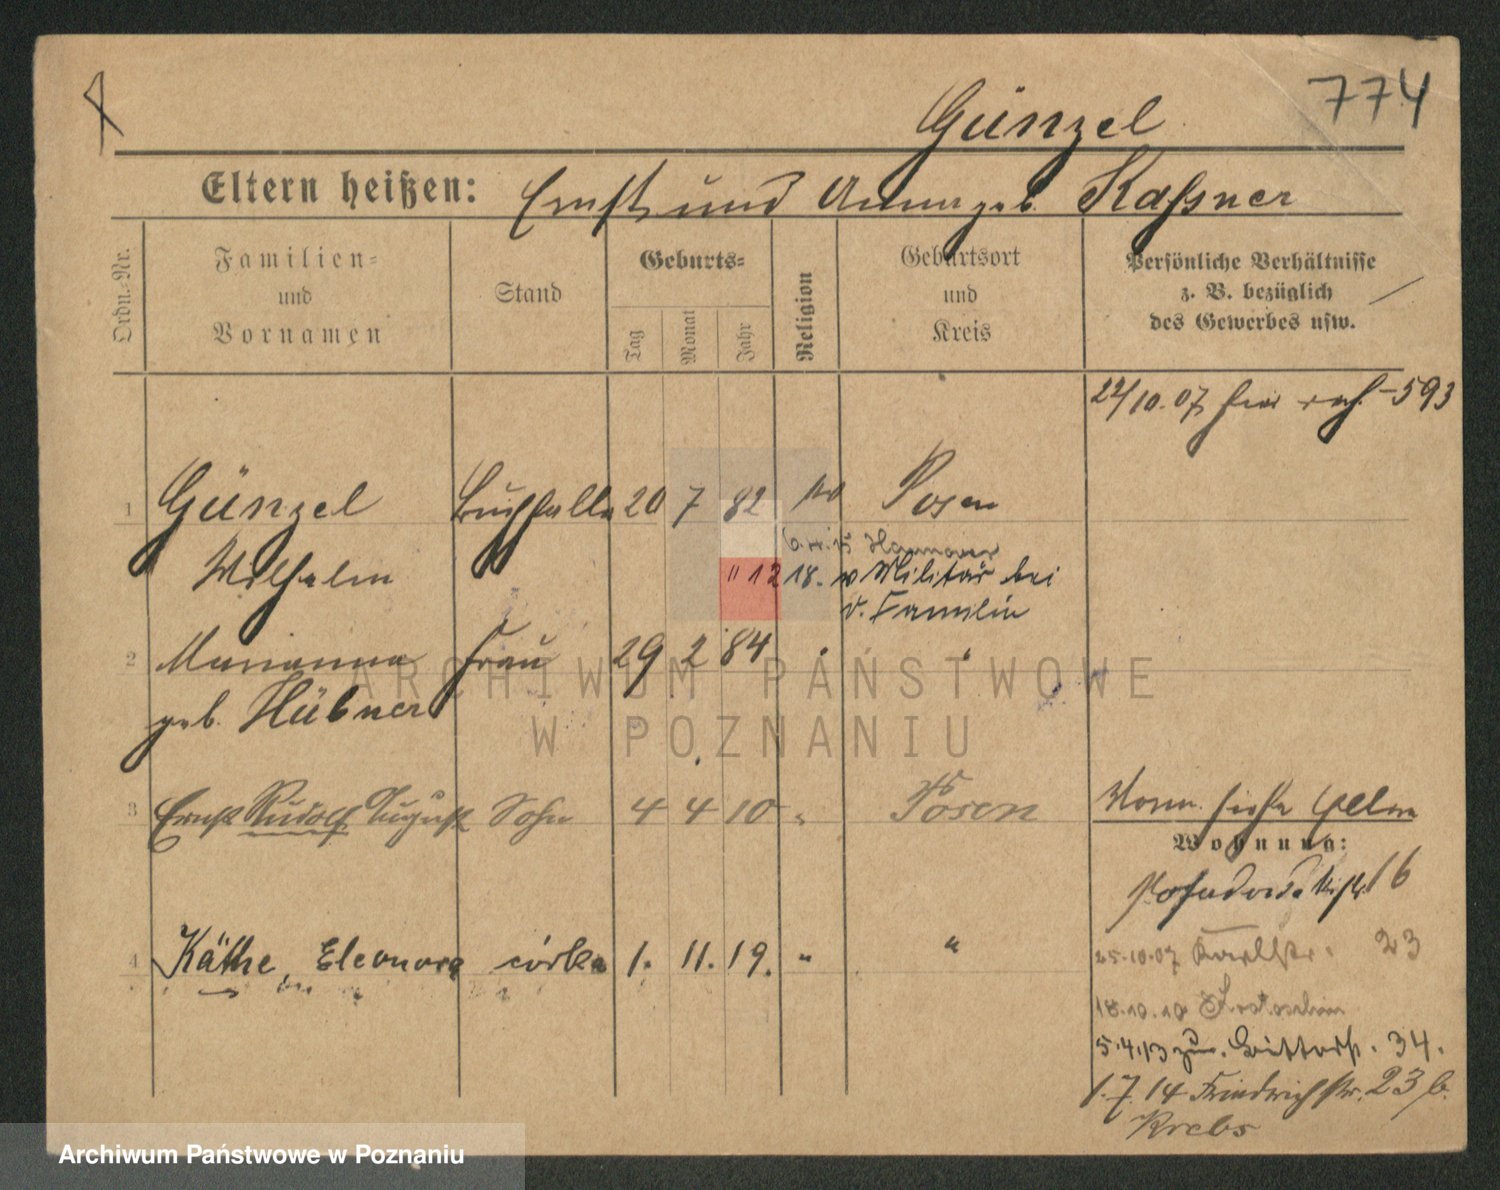 774
Günzel
Eltern heißen: Ernst und Anna geb. Kaßner
Ordn.-Nr.
Familien- und Vornamen
Stand
Geburts-
Tag
Monat
Jahr
Religion
Geburtsort und Kreis
Persönliche Verhältnisse
z. B. bezüglich
des Gewerbes usw.
22/10.07 593
1 Günzel 20 7 82 Posen
Wilhelm
6. 15 Hannover
" 12 18. v Militär bei
d. Familie
2 Marianna Frau 29 2 84
geb. Hübner
3 Ernst Rudolf August Sohn 4 4 10 " Posen
Wohnung:
16
4 Käthe, Eleonora córka 1. 11. 19. " "
25.10.07 Karlstr. 23
18.10.10 Krotoschin
5.4.13 34.
1.7.14 Friedrichstr. 23 b.
Krebs
ARCHIWUM PAŃSTWOWE
W POZNANIU
Archiwum Państwowe w Poznaniu